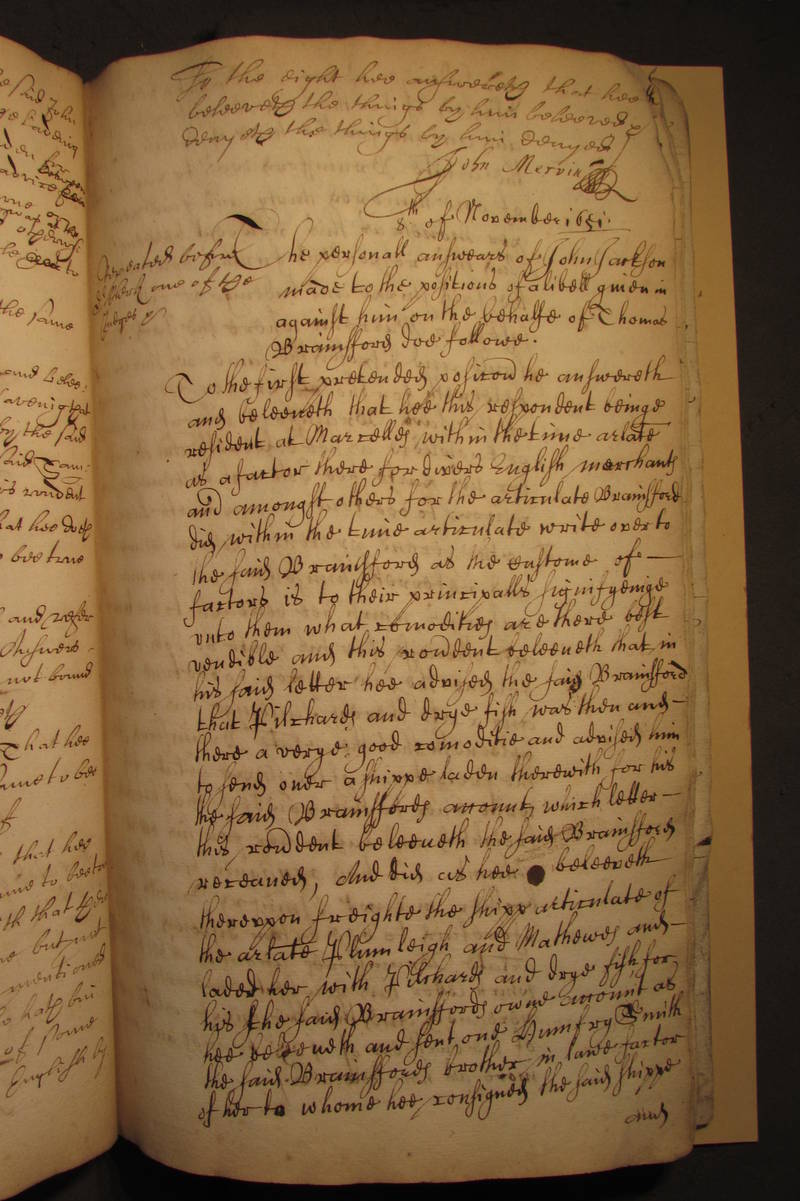 To the eight hee answereth that hee
beleeveth the things by him beleeved
denyeth the things by him denyed
John Mervin
8th of November 1651.
Repeated before
one of the
Judges
The personall answears of John Jackson
made to the positions of a libell given in
against him on the behalfe of Thomas
Brainsford doe followe.
To the first pretended position he answereth
and beleeveth that hee this respondent beinge
resident at Marcelles within the time arlate
as a factor there for divers English merchants
and amongst others for the articulate Brainsford
did within the time articulate write over to
the said Brainsford as the custome of
factors is to their principalls signifyeinge
unto them what comodities are there best
vendible and this rondent beleeveth that in
his said letter hee advised the said Brainsford
that Pilchards and drye fish was then and
there a verye good comoditie and advised him
to send over a shippe laden therewith for his
the said Brainsfords account, which letter
this rondent beleeveth the said Brainsford
receaved, And did as hee beleeveth
thereuppon freighte the shipp articulate of
the arlate Plumleigh and Mathewes and
laded her with Pilchards and drye fish for
his the said Brainsfords owne account as
hee beleeveth and sent one Humfry Smith
the said Brainsfords brother in lawe factor
of her to whome hee consigned the said shippe
and
the same
by the said
rondent
that hee doth
bee true
and refer
Answers
not bound
That hee
that hee
but not
mentioned
of some
English by